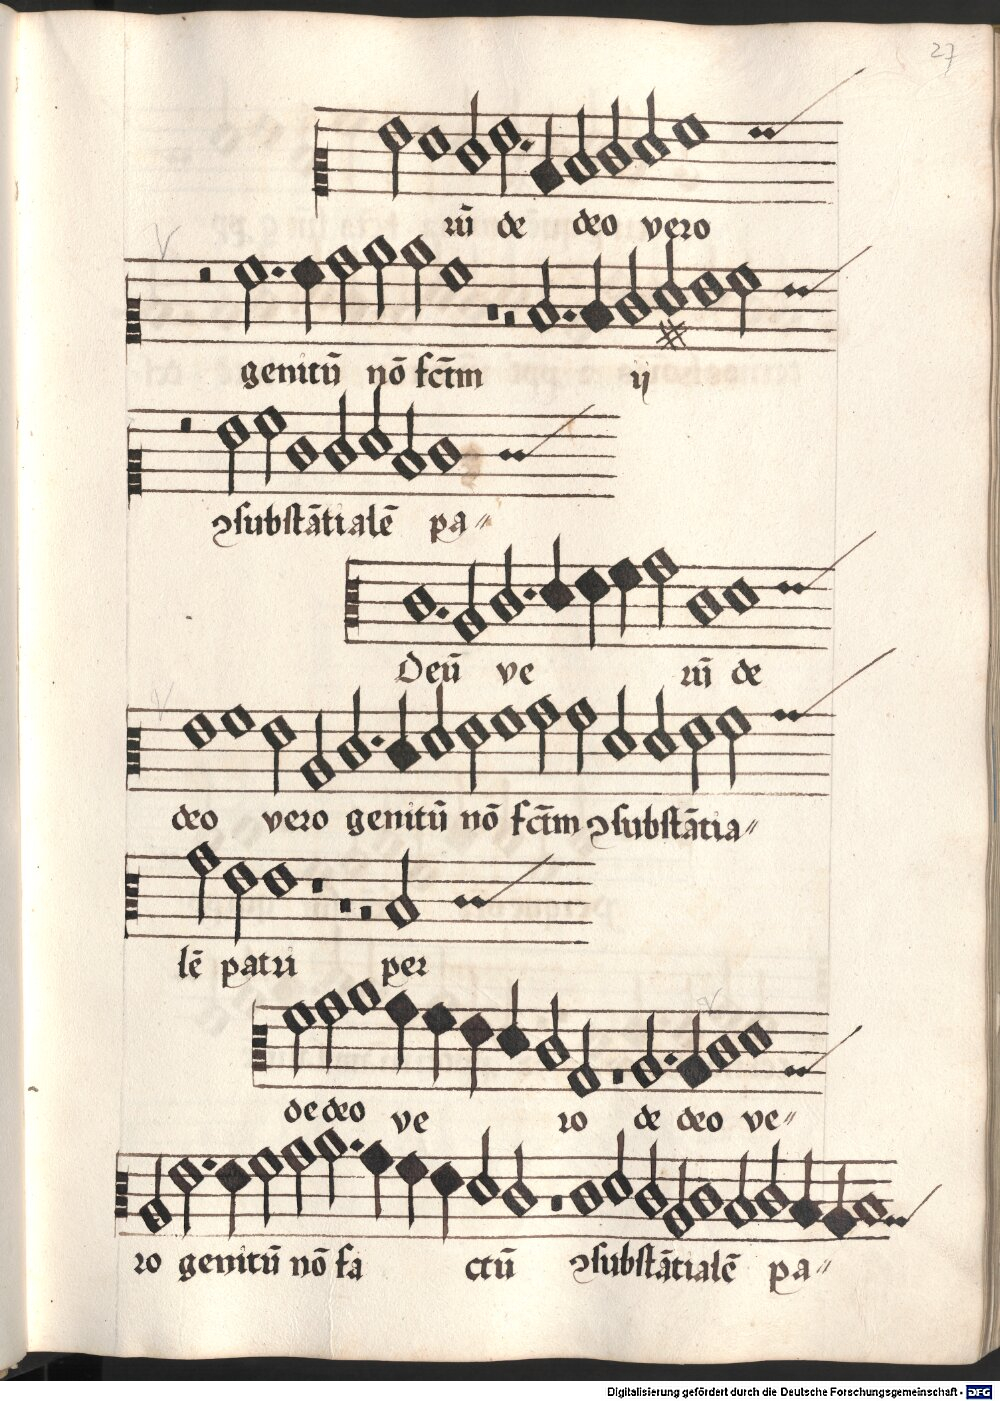 27
rū de deo vero
genitū nō fc̄tm ij
ꝯsubstātialē pa〃
Deū ve rū de
deo vero genitū nō fc̄tm ꝯsubstātia〃
lē patri per
de deo ve ro de deo ve〃
ro genitū nō fa ctū ꝯsubstātialē pa〃
Digitalisierung gefördert durch die Deutsche Forschungsgemeinschaft - DFG